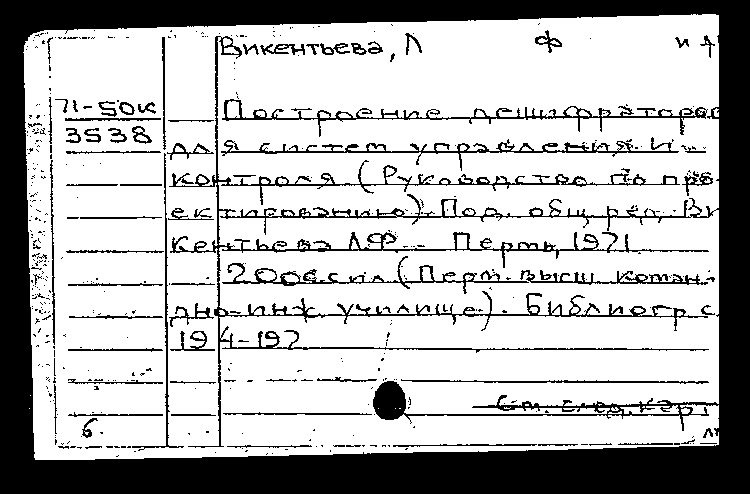 Викентьева, Л Ф и др
71-50к
3538
Построение дешифраторов
для систем управления и
контроля (Руководство по про-
ектированию). Под. общ. ред. Ви
кентьева Л.Ф – Пермь, 1971
200с. с ил (Перм. высш коман-
дно-инж училище). Библиогр с
194-197
См. след. карт
6